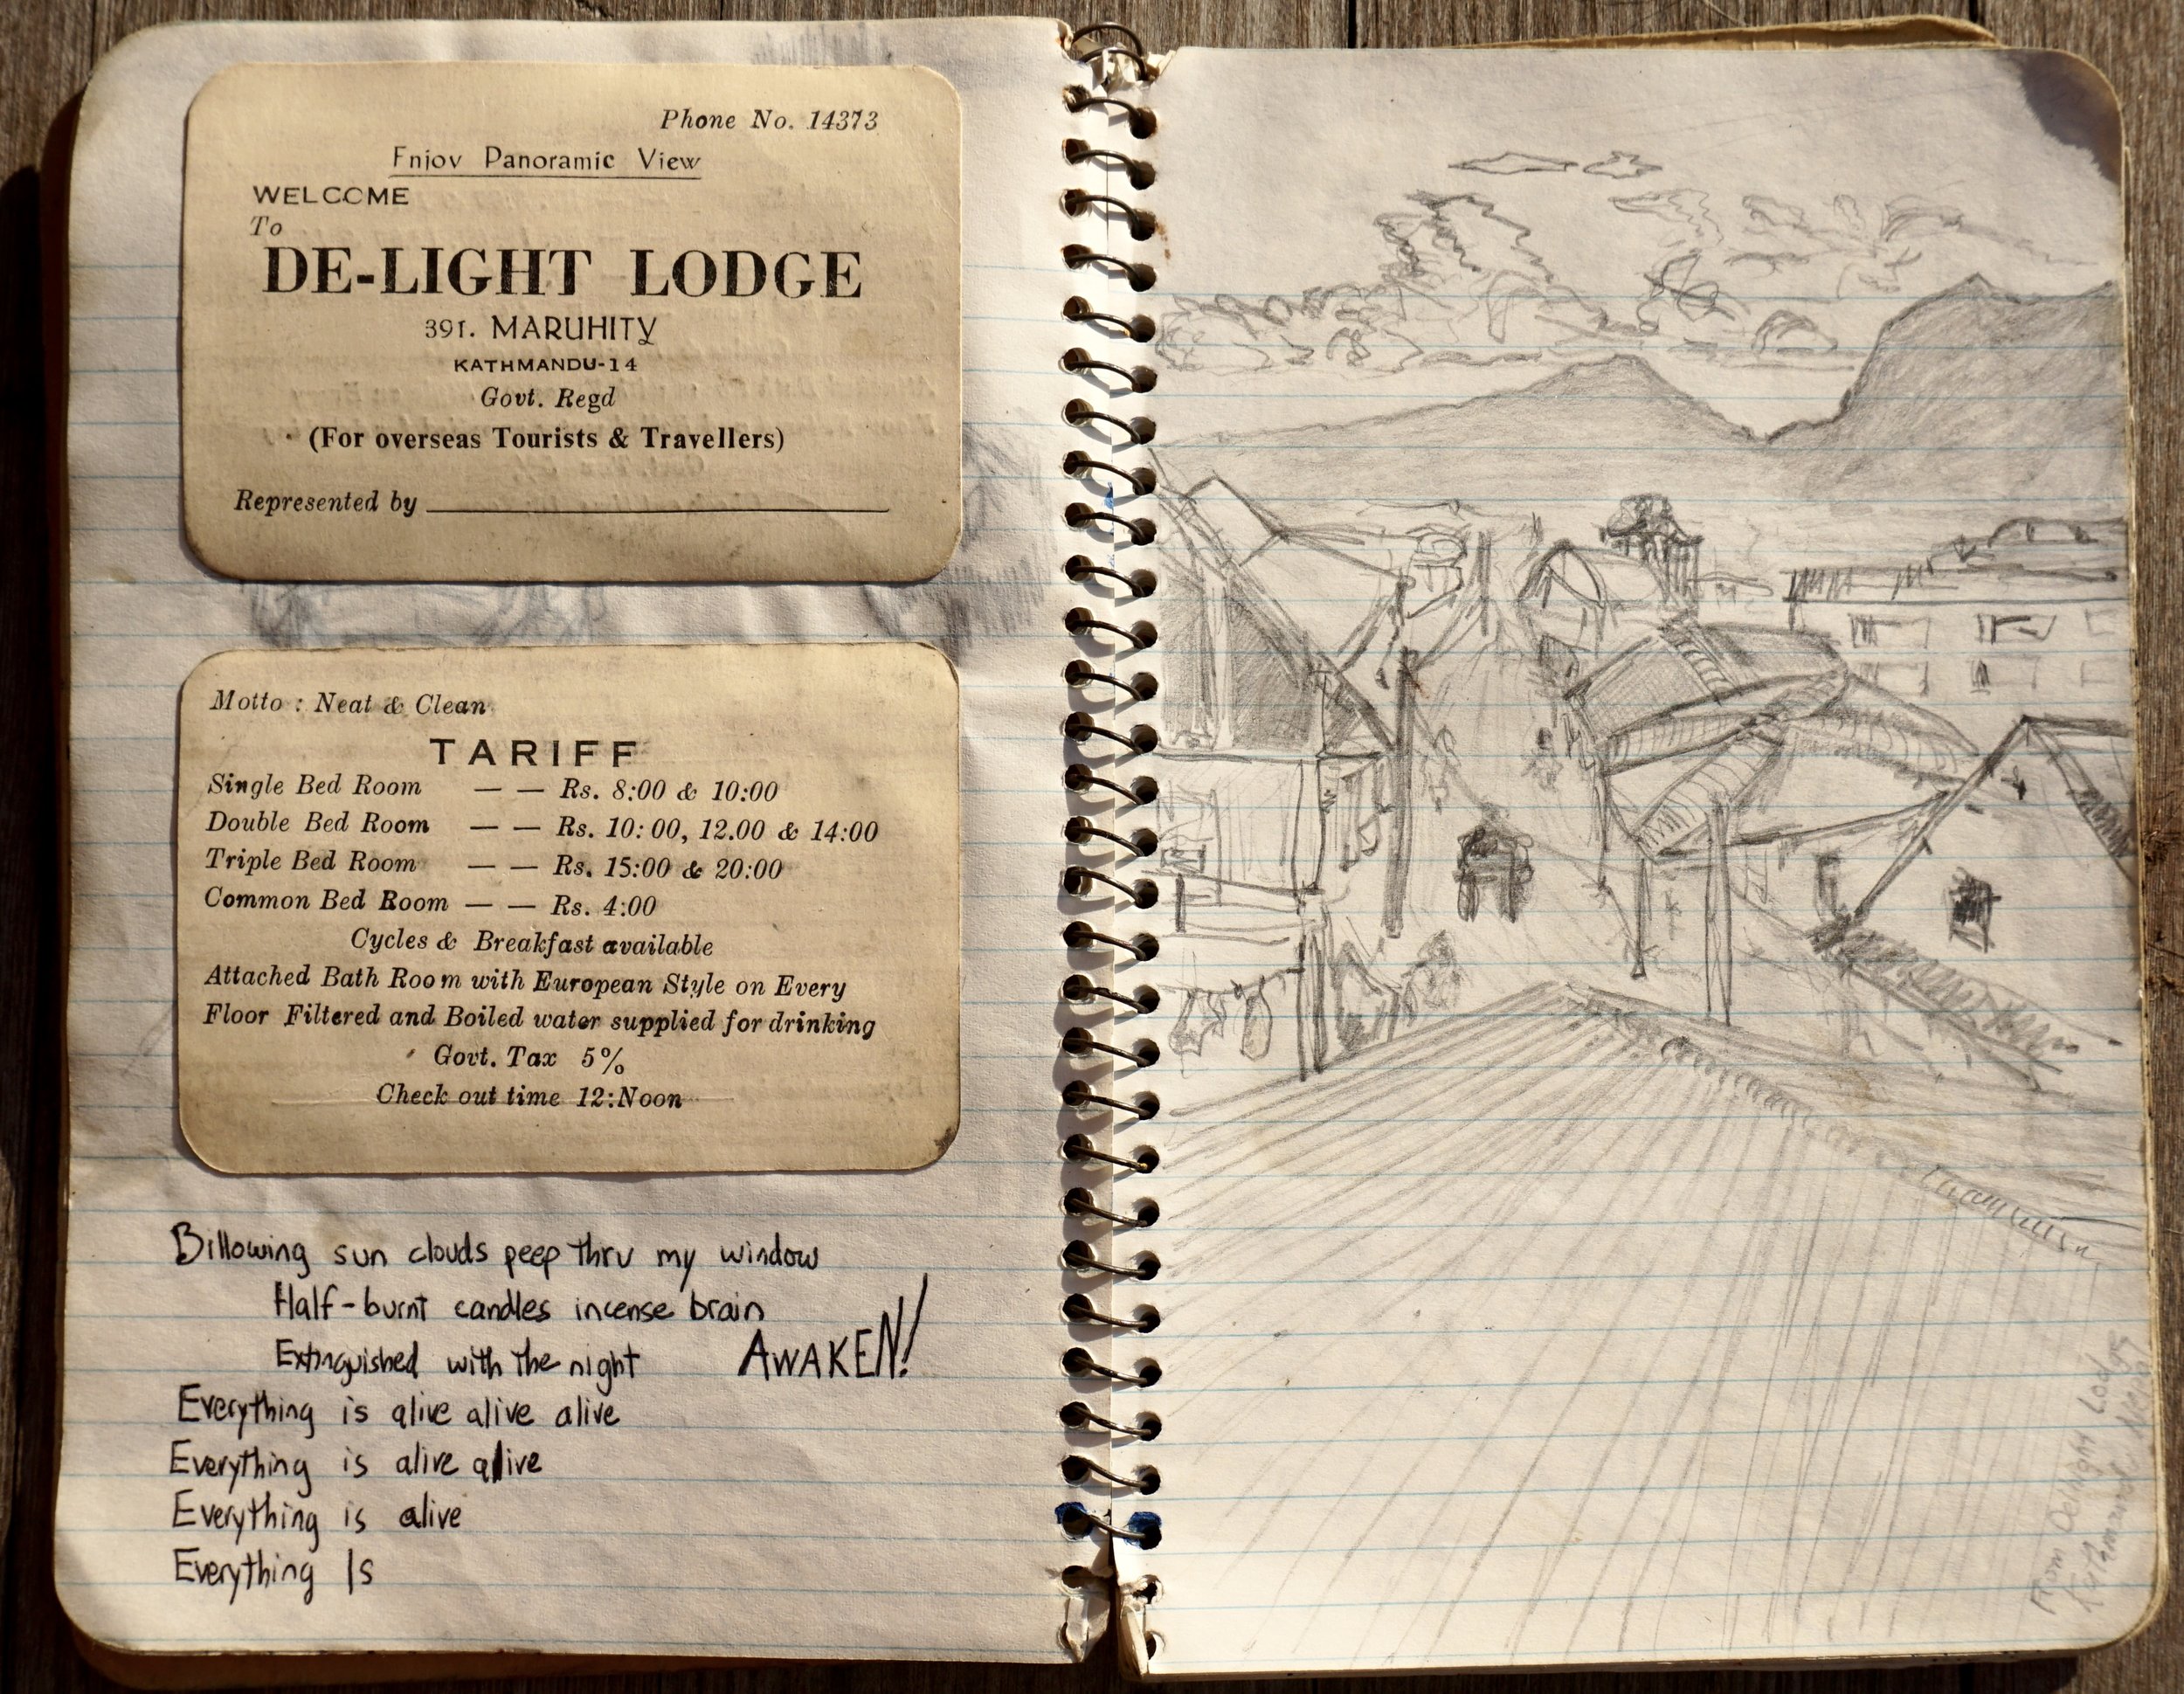 Phone No. 14373
Enjoy Panoramic View
WELCOME
To
DE-LIGHT LODGE
391. MARUHITY
KATHMANDU-14
Govt. Regd
(For overseas Tourists & Travellers)
Represented by
Motto : Neat & Clean
TARIFF
Single Bed Room — — Rs. 8:00 & 10:00
Double Bed Room — — Rs. 10:00, 12.00 & 14:00
Triple Bed Room — — Rs. 15:00 & 20:00
Common Bed Room — — Rs. 4:00
Cycles & Breakfast available
Attached Bath Room with European Style on Every
Floor Filtered and Boiled water supplied for drinking
Govt. Tax 5%
Check out time 12:Noon
Billowing sun clouds peep thru my window
Half-burnt candles incense brain
Extinguished with the night AWAKEN!
Everything is alive alive alive
Everything is alive alive
Everything is alive
Everything Is
From Delight Lodge
Kathmandu, Nepal